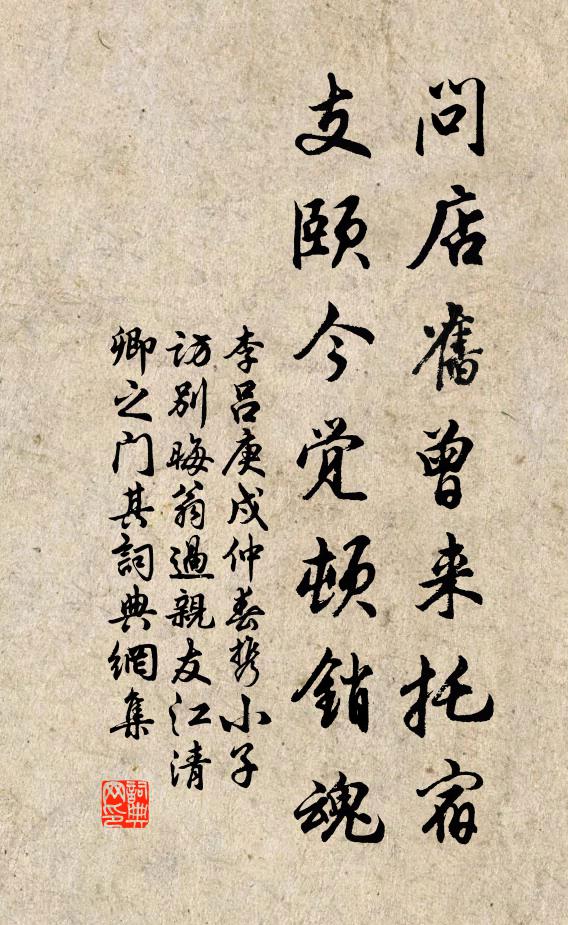 问店舊曾来托宿
支颐今觉顿銷魂
李吕庚戌仲春携小子
访别晦翁過親友江清
卿之门其詞典網集
詞典网印